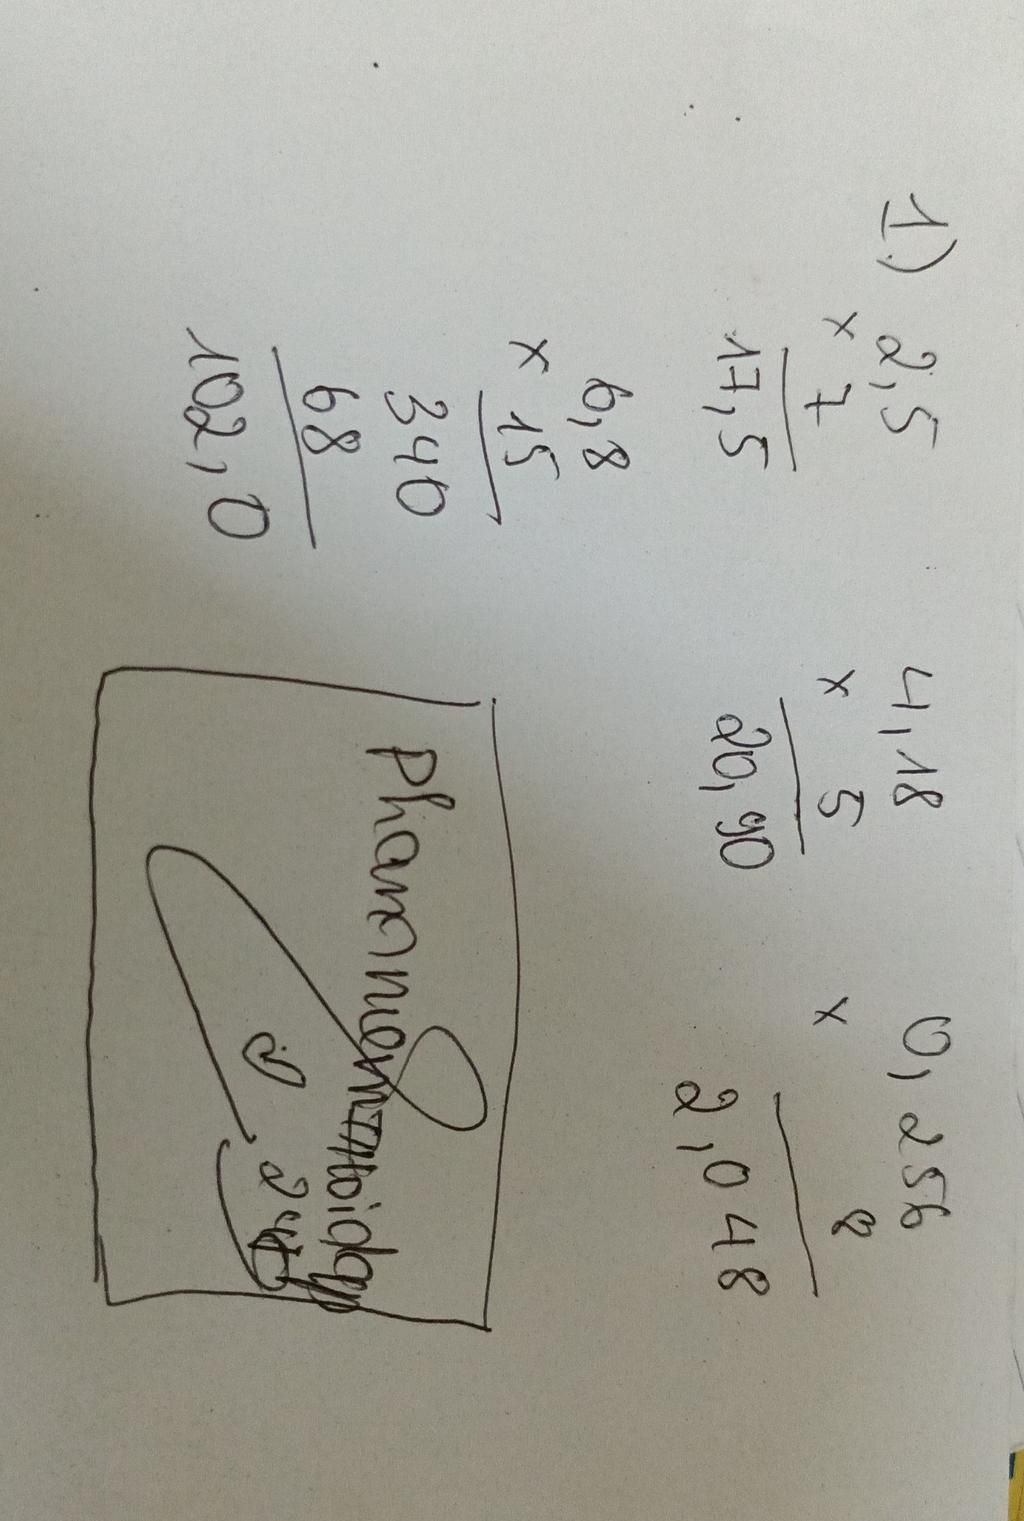 1) 2,5
x 7
17,5
4,18
x 5
20,90
0,256
x 8
2,048
6,8
x 15
340
68
102,0